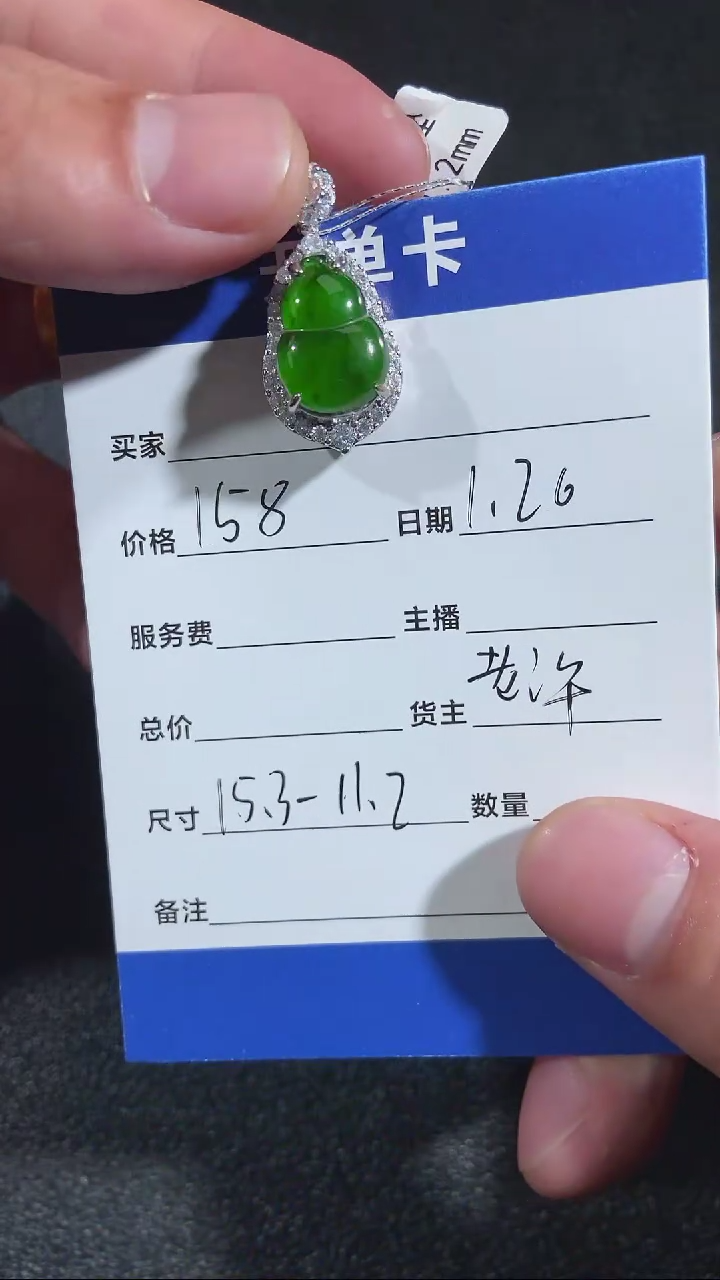 2mm
单卡
买家
价格 158 日期 1.26
服务费 主播
总价 货主 老许
尺寸 15.3-11.2 数量
备注